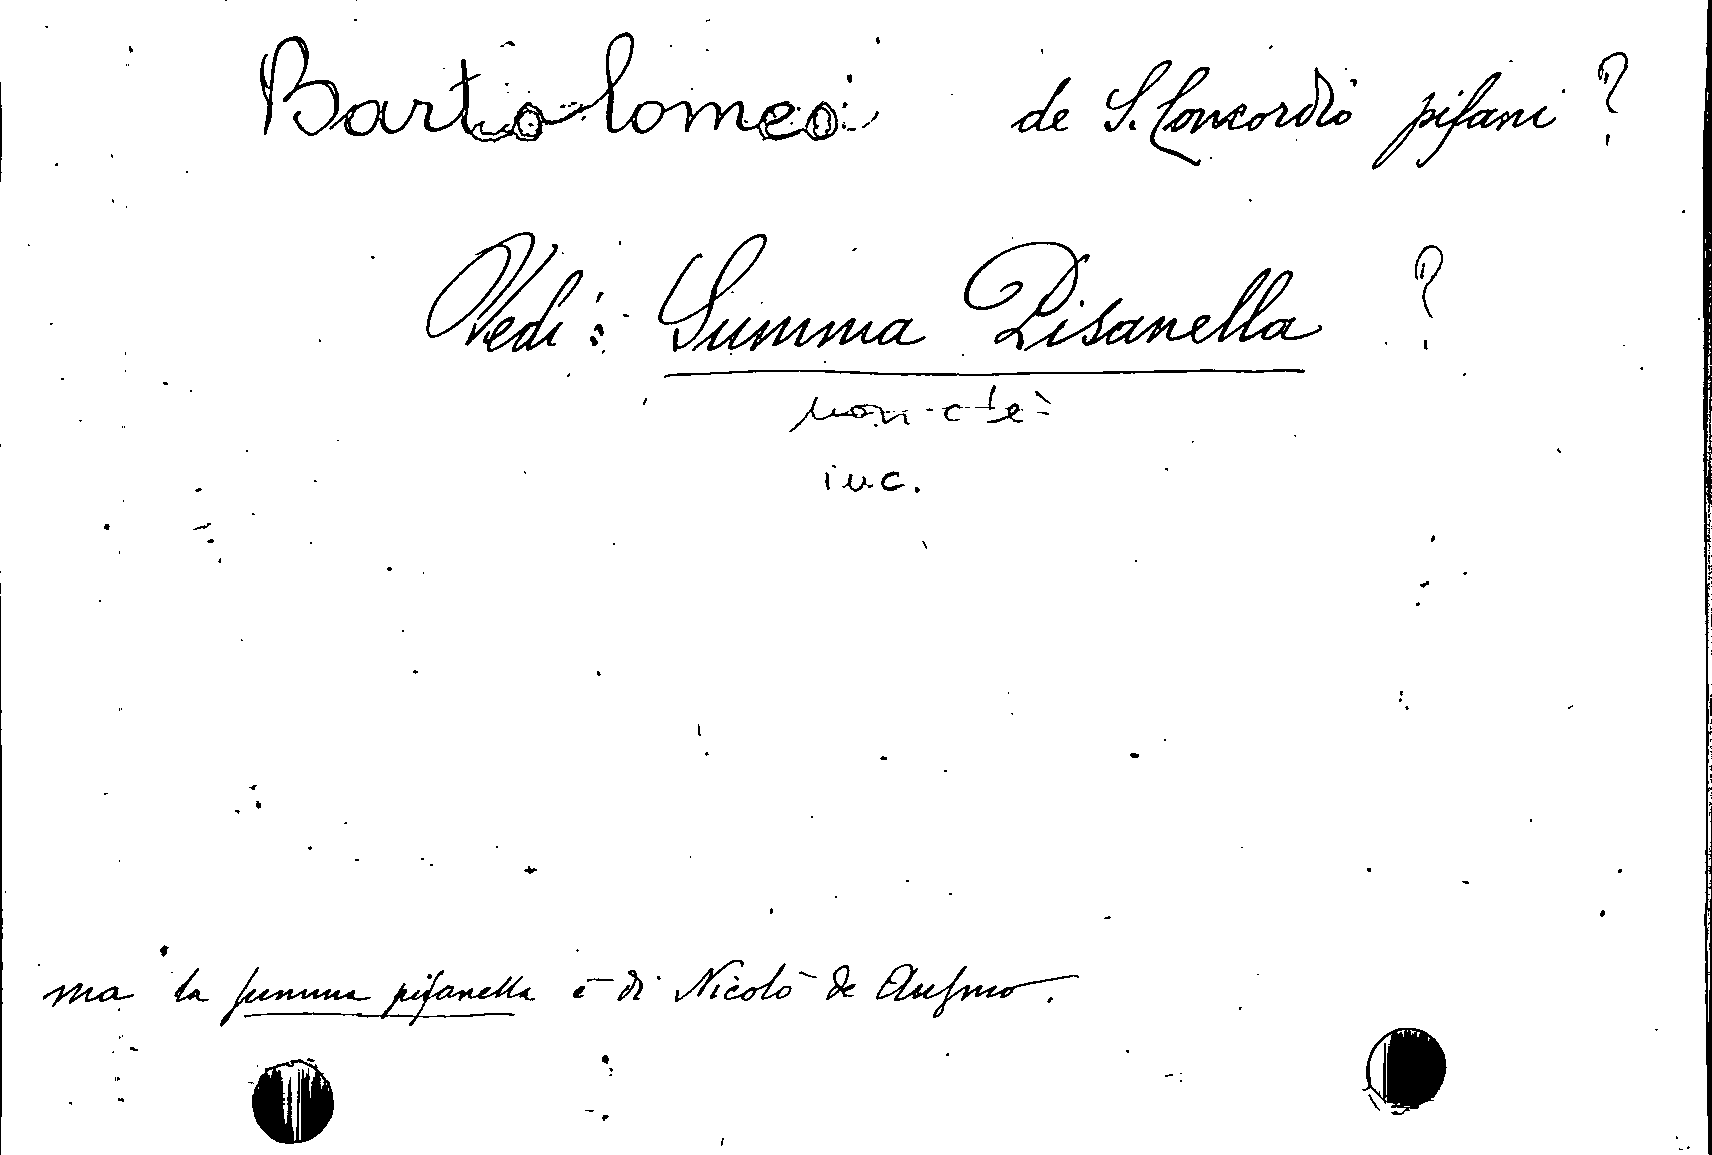 Bartolomeo de S. Concordio pisani ?
Vedi : Summa Pisanella ?
non c'è
inc.
ma la summa pisanella è di Nicolò de Ausmo.